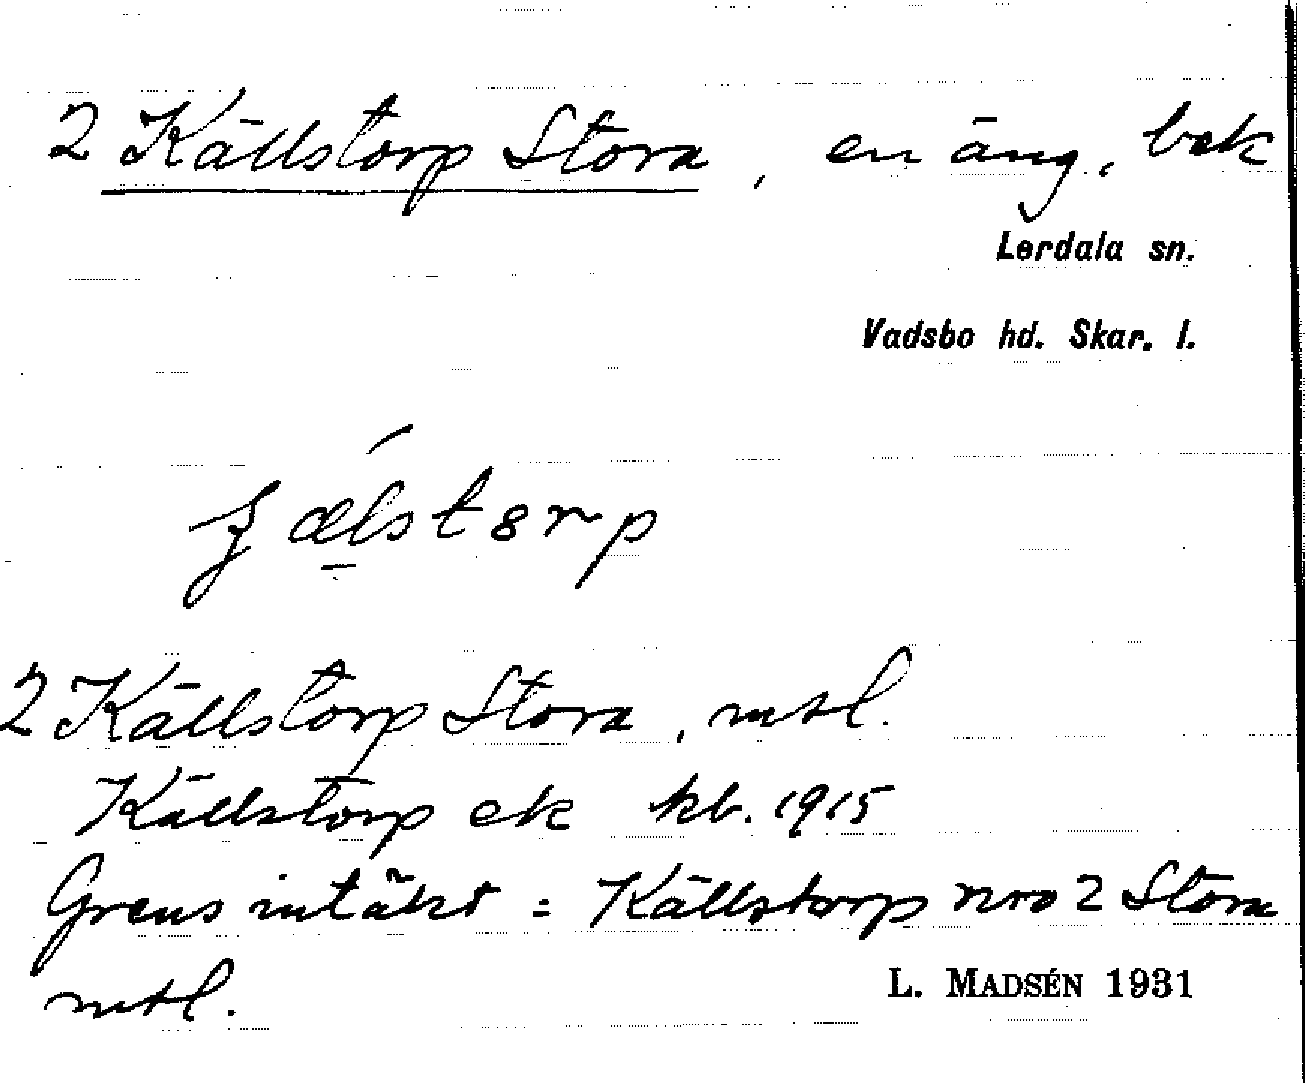 2 Källstorp Stora, en äng, bek
Lerdala sn.
Vadsbo hd. Skar. l.
2 Källstorp Stora, mtl.
Källstorp ek kb. 1915
Grens intäkt = Källstorp nro 2 Stora
mtl.
L. MADSÉN 1931